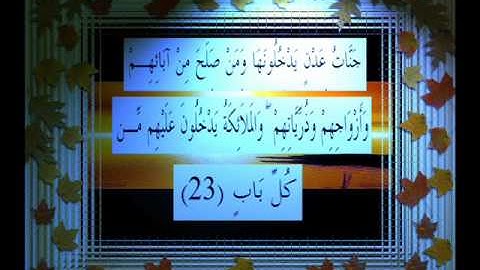 جَنَّاتُ عَدْنٍ يَدْخُلُونَهَا وَمَنْ صَلَحَ مِنْ آبَائِهِمْ
وَأَزْوَاجِهِمْ وَذُرِّيَّاتِهِمْ ۖ وَالْمَلَائِكَةُ يَدْخُلُونَ عَلَيْهِم مِّن
كُلِّ بَابٍ (23)